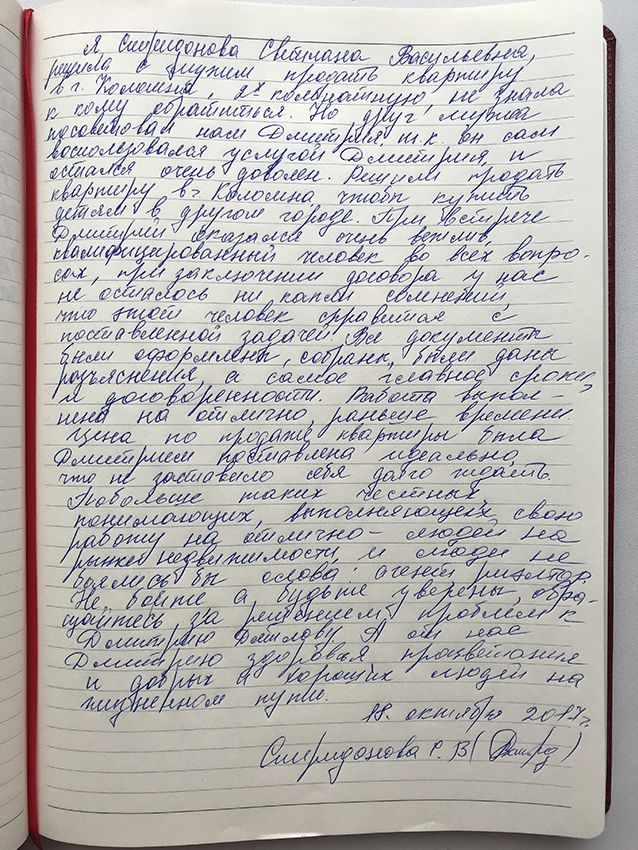 Я, Спиридонова Светлана Васильевна,
решила с мужем продать квартиру
в г. Коломна, 2х комнатную, не знала
к кому обратиться. Но друг мужа
посоветовал нам Дмитрия, т.к. он сам
воспользовался услугой Дмитрия и
остался очень доволен. Решили продать
квартиру в г. Коломна чтобы купить
детям в другом городе. При встрече
Дмитрий оказался очень вежлив,
квалифицированный человек во всех вопро-
сах, при заключении договора у нас
не осталось ни капли сомнений,
что этот человек справится с
поставленной задачей! Все документы
были оформлены, собраны, были даны
разъяснения, а самое главное сроки
и договоренности. Работа выпол-
нена на отлично, раньше времени.
Цена по продаже квартиры была
Дмитрием поставлена идеально,
что не заставило себя долго ждать.
Побольше таких честных,
понимающих, выполняющих свою
работу на отлично - людей на
рынке недвижимости и люди не
боялись бы слова: агент риэлтор.
Не бойте а будьте уверены, обра-
щайтесь за решением проблем к
Дмитрию Данилову. А от нас
Дмитрию здоровья процветания
и добрых и хороших людей на
жизненном пути.
18. октября 2017г.
Спиридонова С. В (